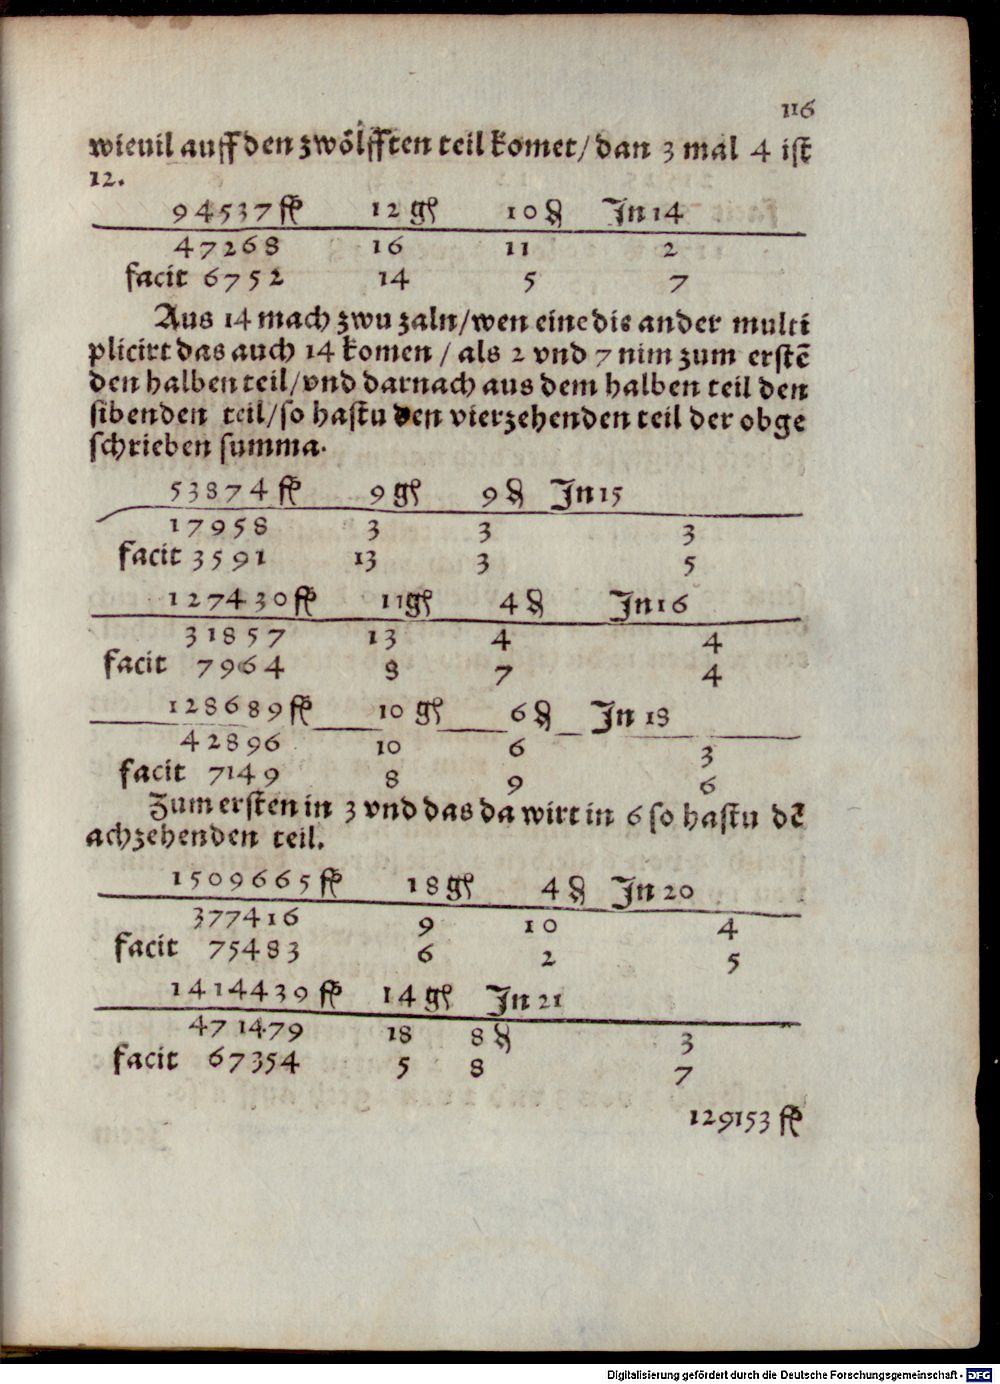 116
wieuil auff den zwölfften teil komet/ dan 3 mal 4 ist
12.
94537 fl 12 gl 10 ₰ Jn 14
47268 16 11 2
facit 6752 14 5 7
Aus 14 mach zwu zaln/wen eine die ander multi
plicirt das auch 14 komen / als 2 vnd 7 nim zum erstē
den halben teil/vnd darnach aus dem halben teil den
sibenden teil/so hastu den vierzehenden teil der obge
schrieben summa.
53874 fl 9 gl 9 ₰ Jn 15
17958 3 3 3
facit 3591 13 3 5
127430 fl 11 gl 4 ₰ Jn 16
31857 13 4 4
facit 7964 8 7 4
128689 fl 10 gl 6 ₰ Jn 18
42896 10 6 3
facit 7149 8 9 6
Zum ersten in 3 vnd das da wirt in 6 so hastu dē
achzehenden teil.
1509665 fl 18 gl 4 ₰ Jn 20
377416 9 10 4
facit 75483 6 2 5
1414439 fl 14 gl Jn 21
471479 18 8 ₰ 3
facit 67354 5 8 7
129153 fl
Digitalisierung gefördert durch die Deutsche Forschungsgemeinschaft - DFG